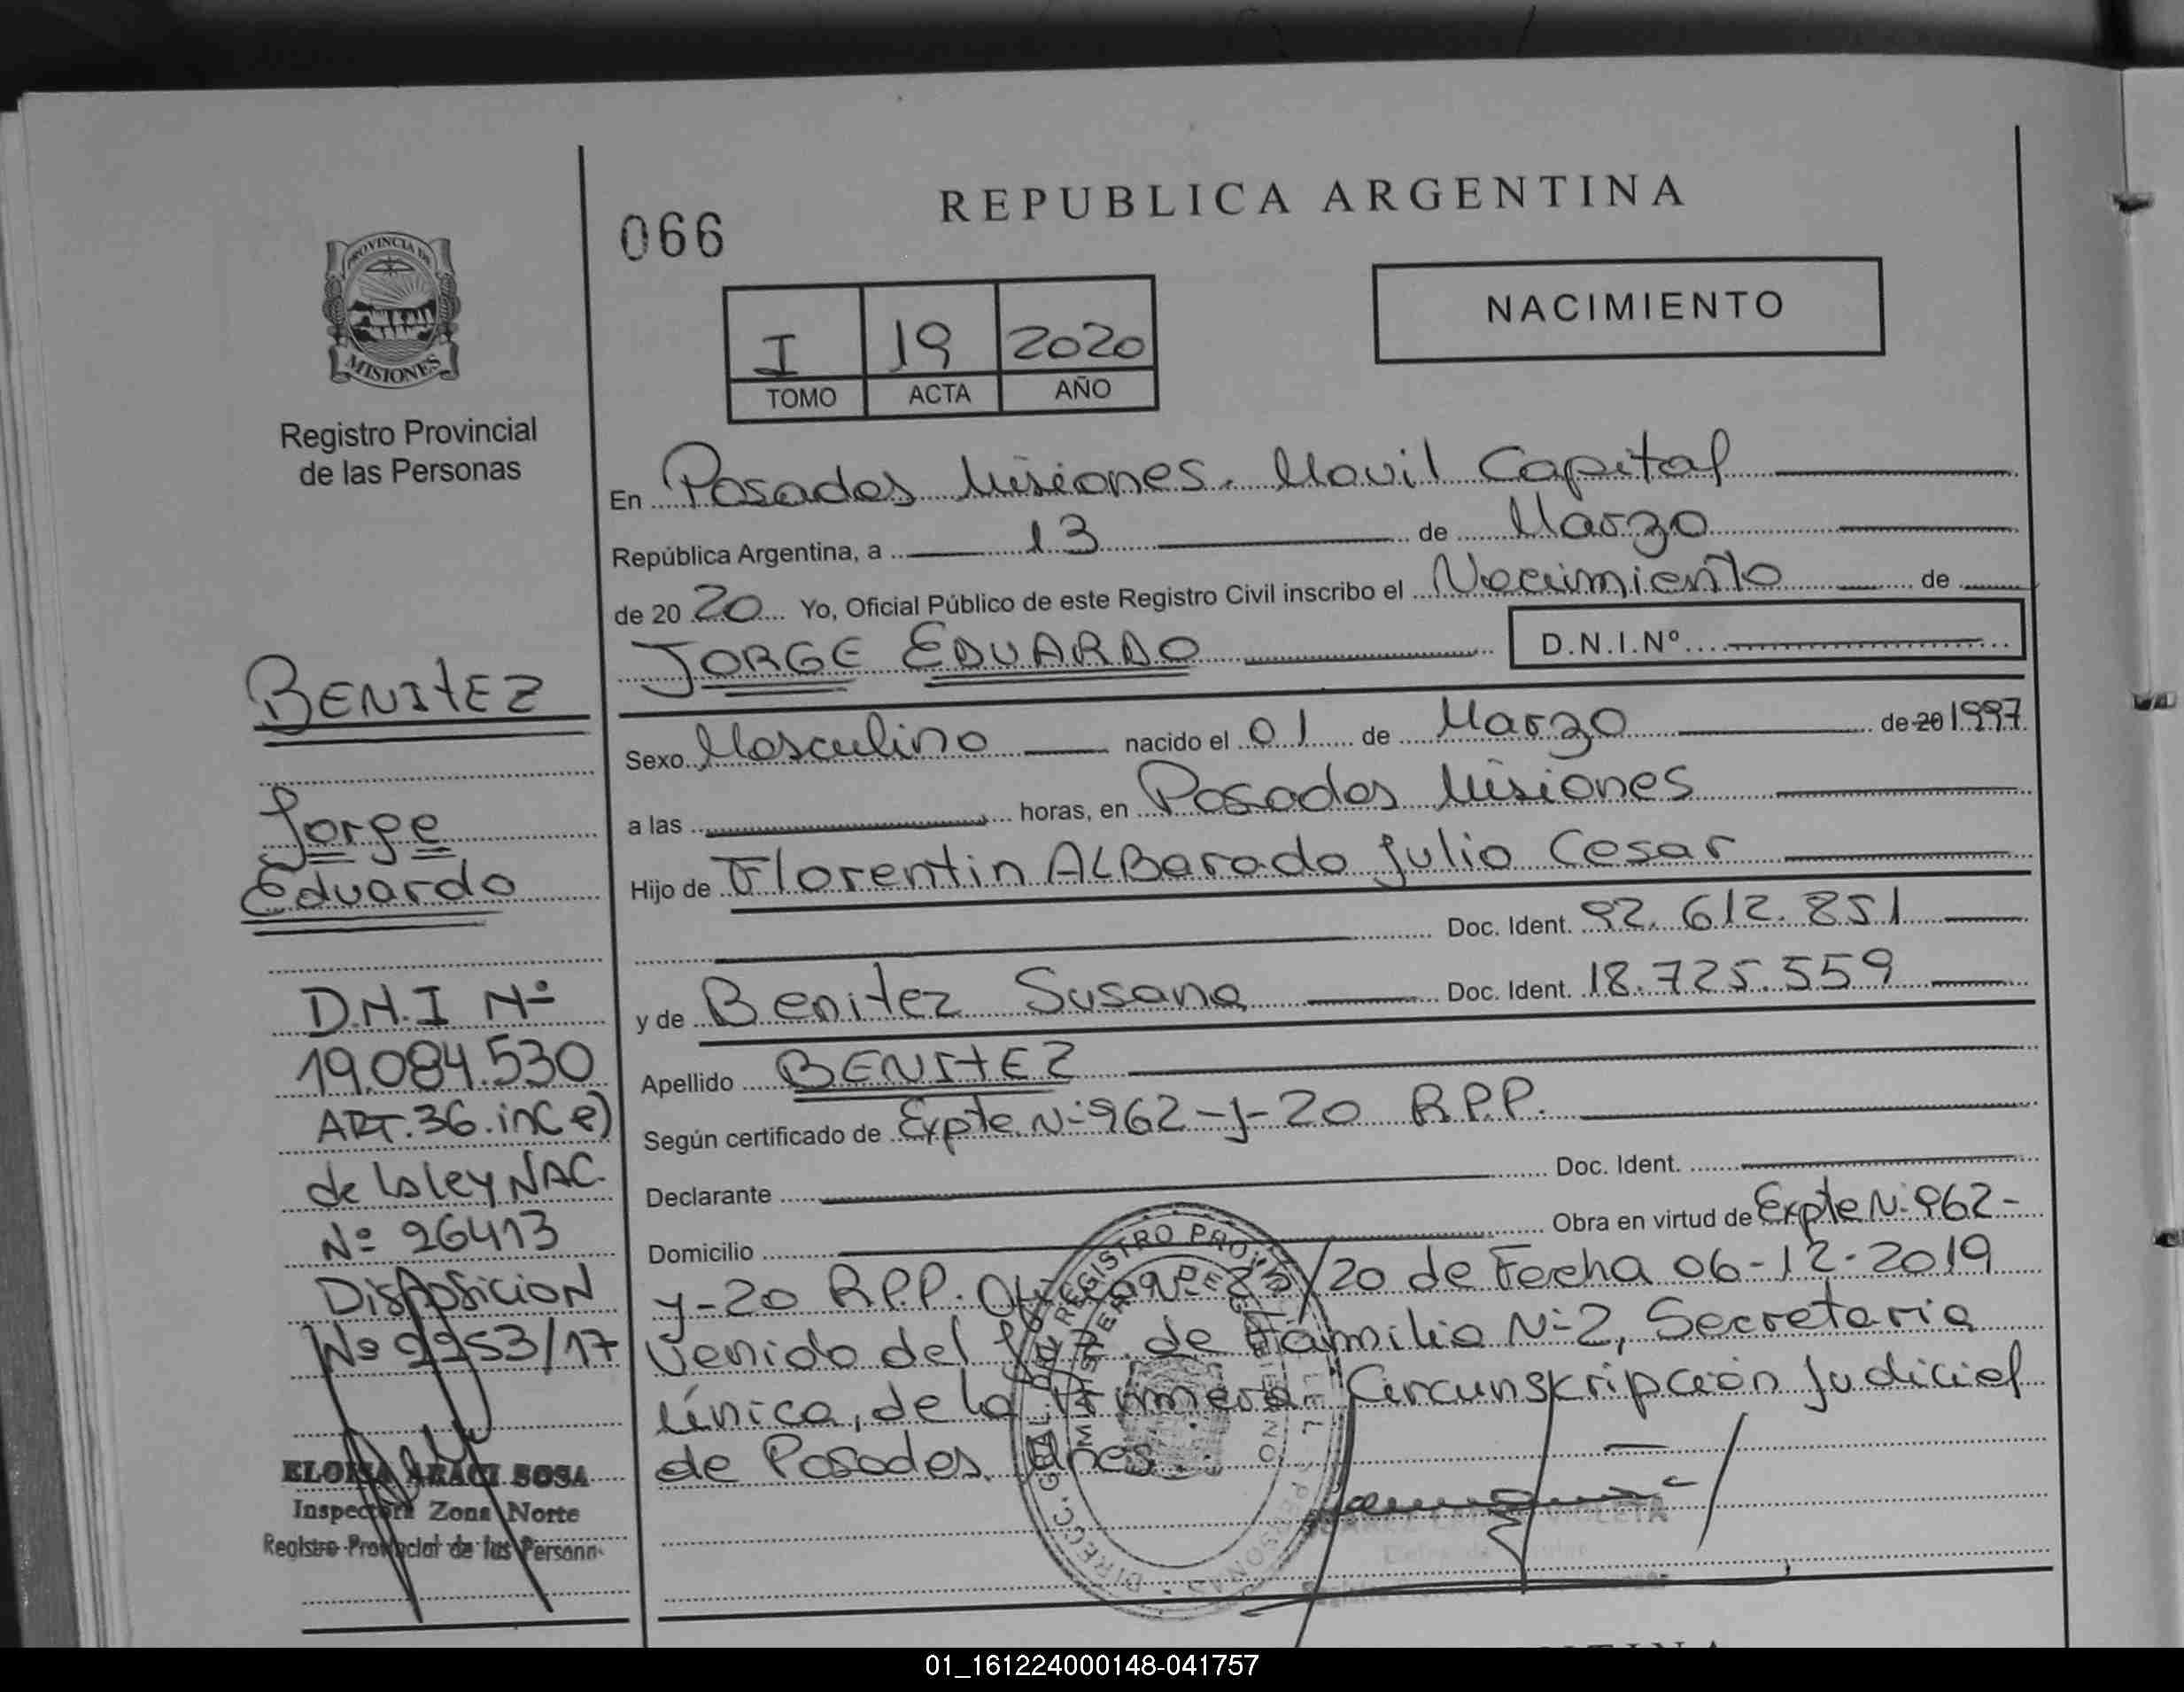 REPUBLICA ARGENTINA
066
NACIMIENTO
I 19 2020
TOMO ACTA AÑO
PROVINCIA DE
MISIONES
Registro Provincial
de las Personas
En Posadas Misiones. Movil Capital
República Argentina, a 13 de Marzo
de 20 20 Yo, Oficial Público de este Registro Civil inscribo el Nacimiento de
JORGE EDUARDO D.N.I.Nº
Sexo Masculino nacido el 01 de Marzo de 20 1997
a las horas, en Posadas Misiones
Hijo de Florentin ALBarado Julio Cesar
Doc. Ident. 92.612.851
y de Benitez Susana Doc. Ident. 18.725.559
Apellido BENITEZ
Según certificado de Expte. Nº 962-y-20 R.P.P.
Declarante Doc. Ident.
Domicilio Obra en virtud de Expte Nº 962-
y-20 R.P.P. /20 de Fecha 06-12-2019
venido del de Familia Nº 2, Secretaria
única, de la Primera Circunskripción Judicial
de Posadas Mnes.
BENITEZ
Jorge
Eduardo
D.N.I Nº
19.084.530
ART.36.inc e)
de la ley NAC.
Nº 26413
Disposicion
Nº 2253/17
ARACI SOSA
Inspectora Zona Norte
Registro Provincial de las Person
01_161224000148-041757